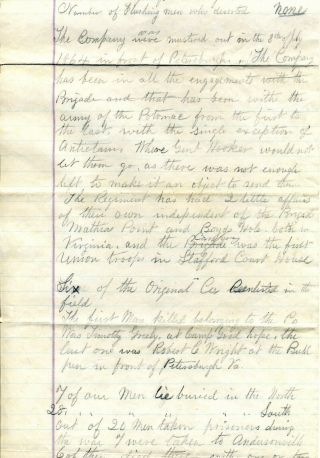 Number of Flushing men who deserted None
The Company were mustered out on the 3rd of July
1864 in front of Petersburgh. The Company
has been in all the engagements with the
Brigade and that has been with the
army of the Potomac from the first to
the last, with the single exception of
Antietam. Where Genl Hooker would not
let them go, as there was not enough
left, to make it an object to send them
The Regiment has had 2 little affairs
of their own independent of the Brigade
Mathias Point and Boyds Hole. both in
Virginia. and the was the first
Union troops in Stafford Court House
Six of the Original Co in the
field
The first Man killed belonging to the Co
was Timothy at Camp Good hope. the
last one was Robert E Wright at the Bull
pen in front of Petersburgh Va
7 of our Men lie buried in the North
20. " " " " " South
Out of 20 Men taken prisoners during
the war 7 were taken to Andersonville
6 of them died there with one or